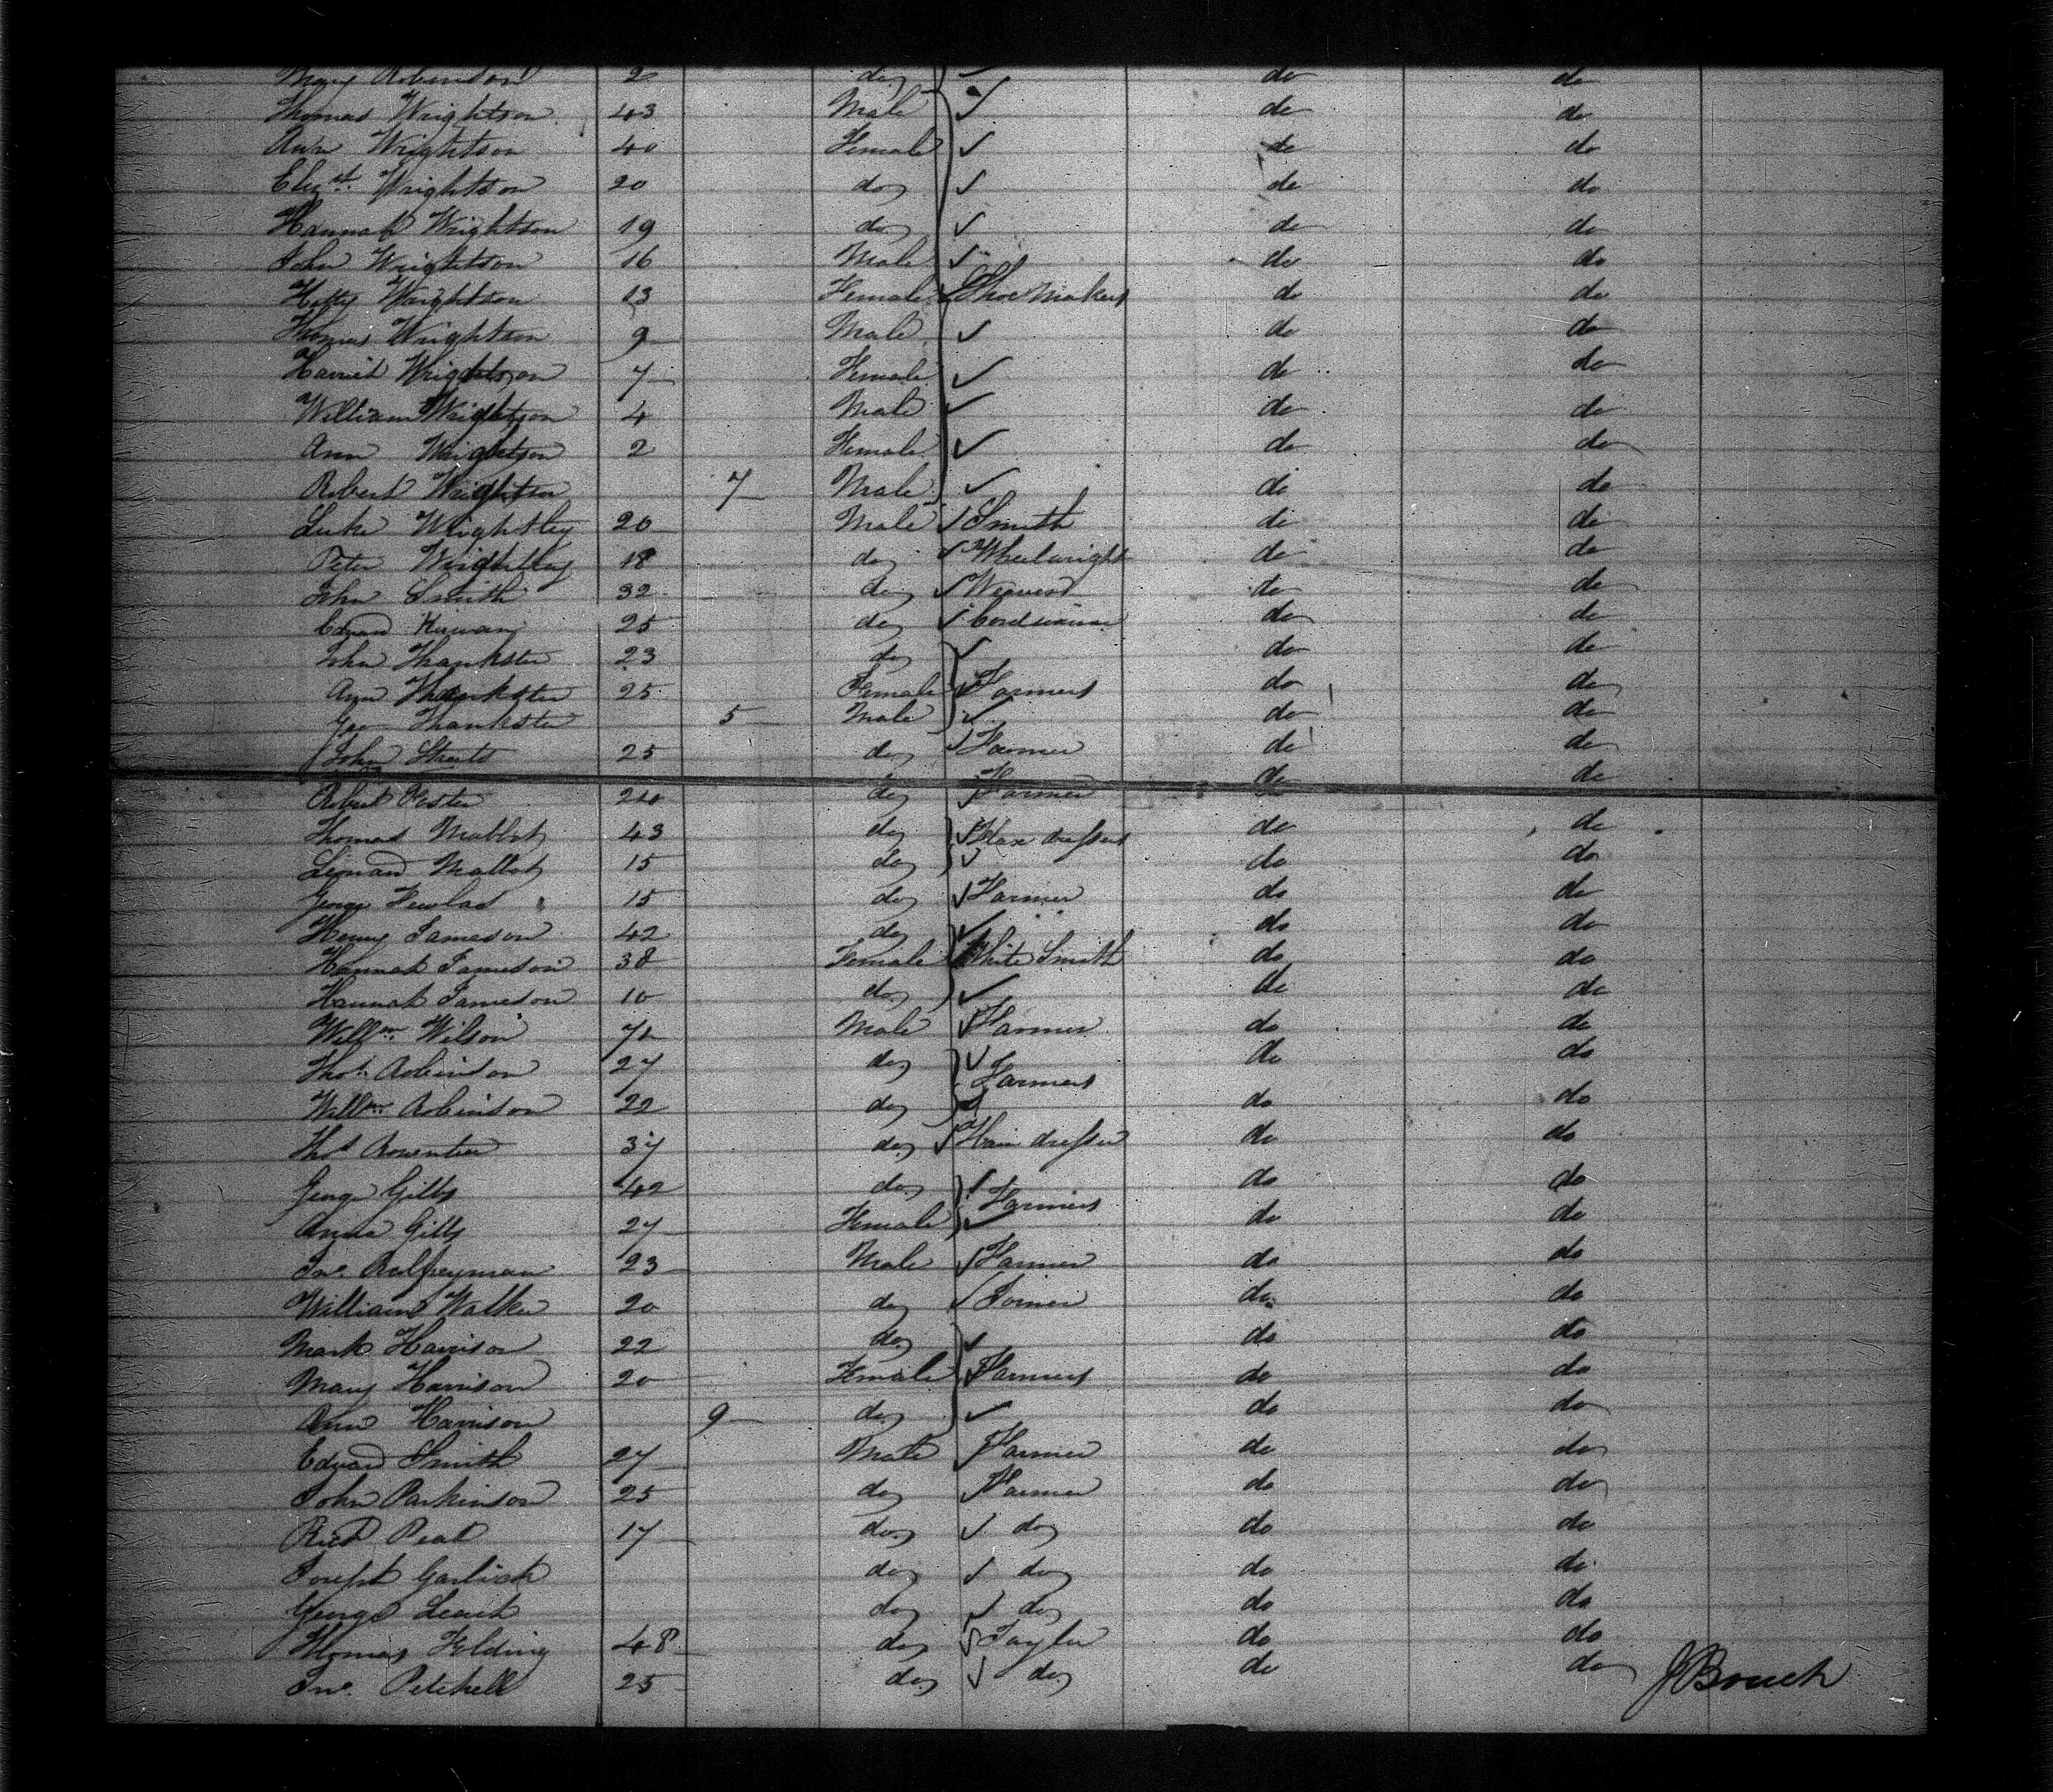 Mary Robinson 2 do do do
Thomas Wrightson 43 Male do do
Ann Wrightson 40 Female do do
Elizst. Wrightson 20 do do do
Hannah Wrightson 19 do do do
John Wrightson 16 Male do do
Hetty Wrightson 13 Female Shoe Makers do do
Thomas Wrightson 9 Male do do
Harriet Wrightson 7 Female do do
William Wrightson 4 Male do do
Ann Wrightson 2 Female do do
Robert Wrightson 7 Male do do
Luke Wrightley 20 Male Smith do do
Peter Wrightley 18 do Wheelwright do do
John Smith 32 do Weaver do do
Edward 25 do Cordwainer do do
John Thankster 23 do do do
Ann Thankster 25 Female Farmers do do
Geo Thankster 5 Male do do
John 25 do Farmer do do
Robert Foster 24 do Farmer do do
Thomas Mallot 43 do Flax dressers do do
Leonard Mallot 15 do do do
George 15 do Farmer do do
Henry Jameson 42 do do do
Hannah Jameson 38 Female White Smith do do
Hannah Jameson 10 do do do
Willm Wilson Male Farmer do do
Thos. Robinson 27 do Farmers do do
Willm Robinson 22 do do do
Thos Rowentree 37 do Hair dresser do do
George Gilby 42 do Farmers do do
Anna Gilby 27 Female do do
Jno. 23 Male Farmer do do
William Walker 20 do Joiner do do
Mark Harrison 22 do do do
Mary Harrison 20 Female Farmers do do
Ann Harrison 9 do do do
Edward Smith 27 Male Farmer do do
John Parkinson 25 do Farmer do do
Richd Peat 17 do do do do
Joseph Garlick do do do do
George Leach do do do do
Thomas Felding 48 do Taylor do do
Jno. Petchell 25 do do do do
J Bouch